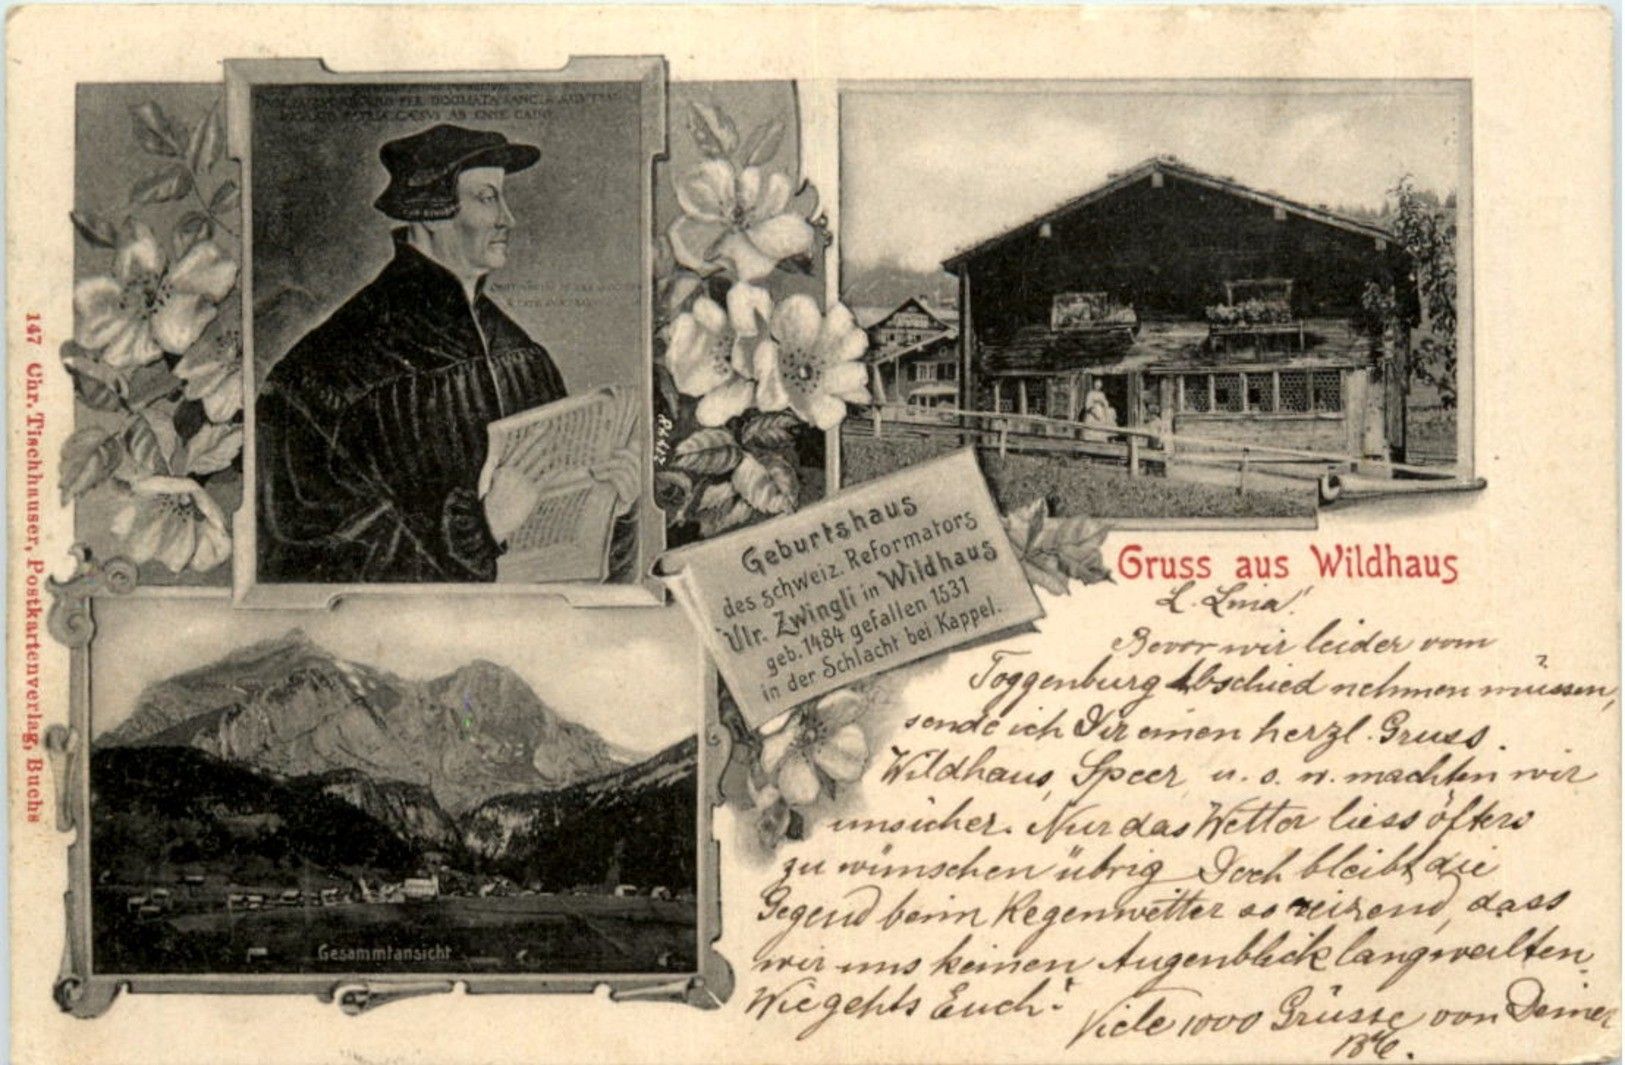 147 Chr. Tischhauser, Postkartenverlag, Buchs
Geburtshaus
des schweiz. Reformators
Ulr. Zwingli in Wildhaus
geb. 1484 gefallen 1531
in der Schlacht bei Kappel.
Gesammtansicht
Gruss aus Wildhaus
L.
Bevor wir leider vom
Toggenburg Abschied nehmen müssen,
sende ich Dir einen herzl. Gruss.
Wildhaus, Speer u. s. w. machten wir
unsicher. Nur das Wetter liess öfters
zu wünschen übrig Doch bleibt die
Gegend beim Regenwetter so reizend, dass
wir uns keinen Augenblick langweilten.
Wie gehts Euch?
Viele 1000 Grüsse von Deiner